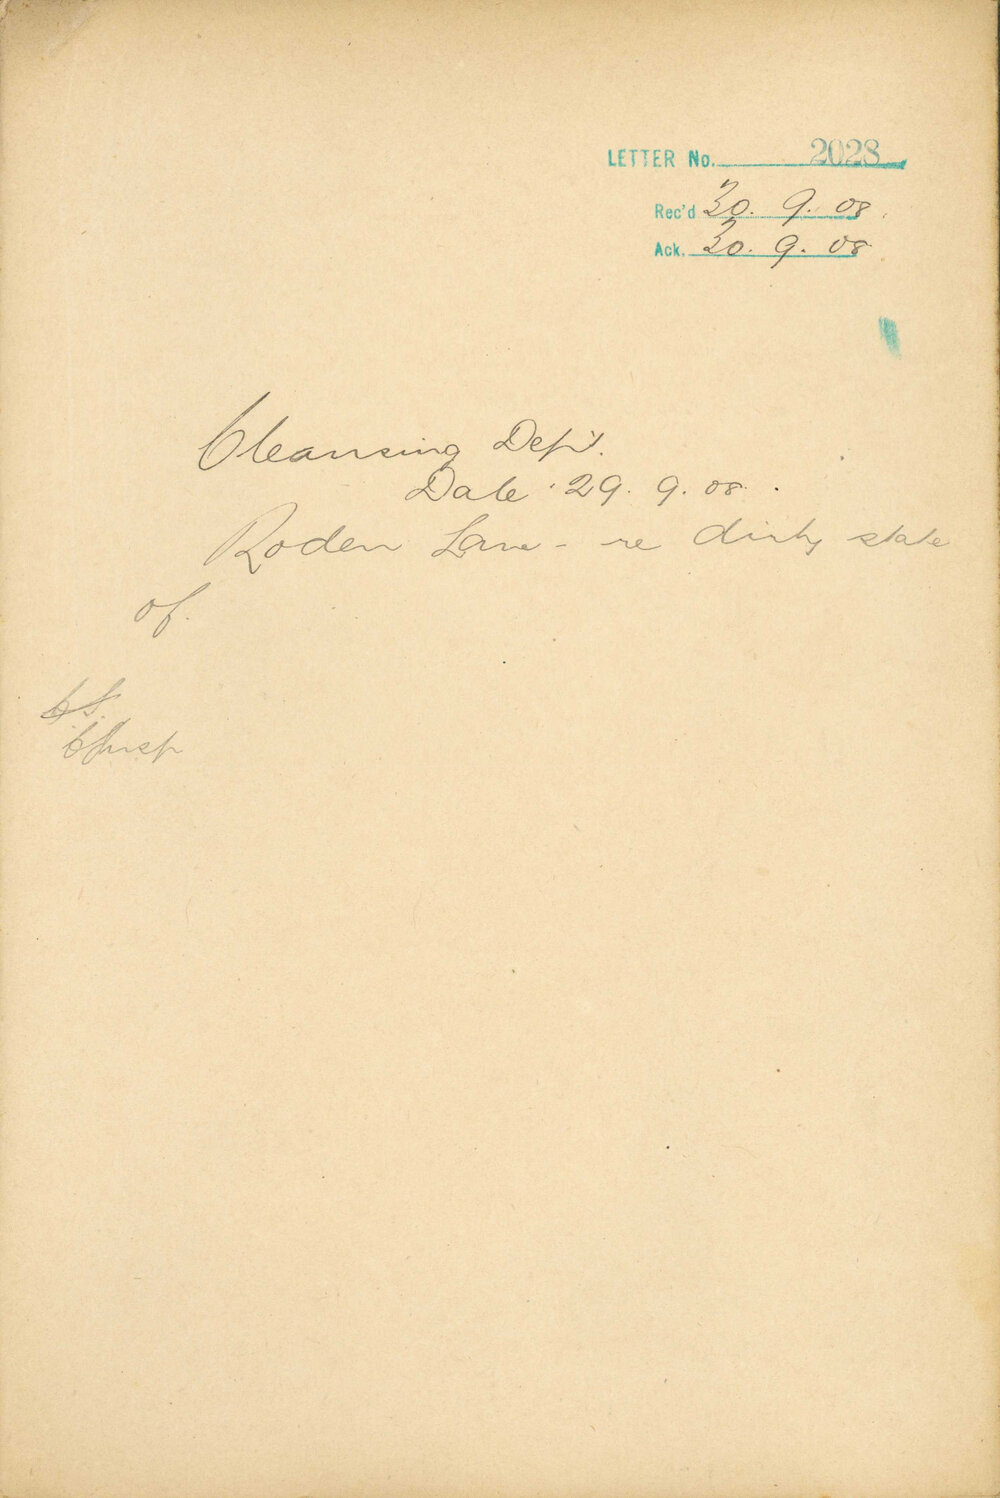 LETTER No. 2028
Rec'd 30. 9. 08.
Ack. 30. 9. 08
Cleansing Dep't.
Date 29. 9. 08.
Roden Lane - re dirty state
of.
C Insp